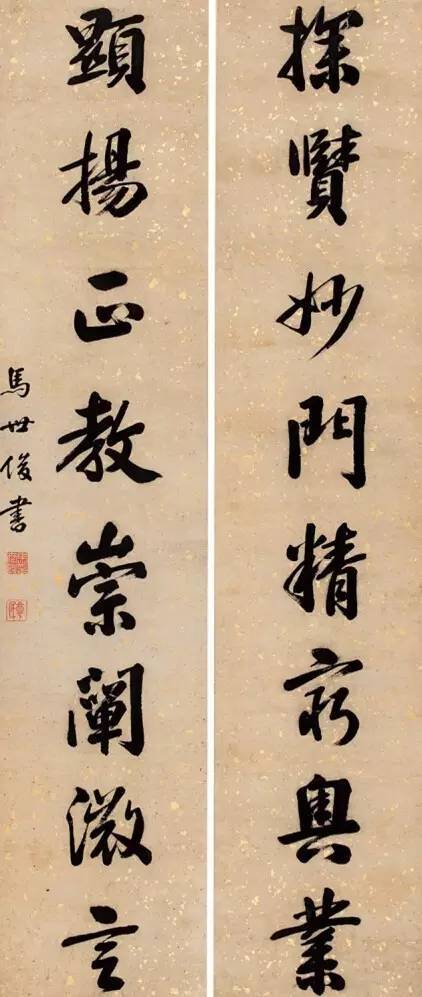 探賾妙門精窮奧業
顯揚正教崇闡微言
馬世俊書